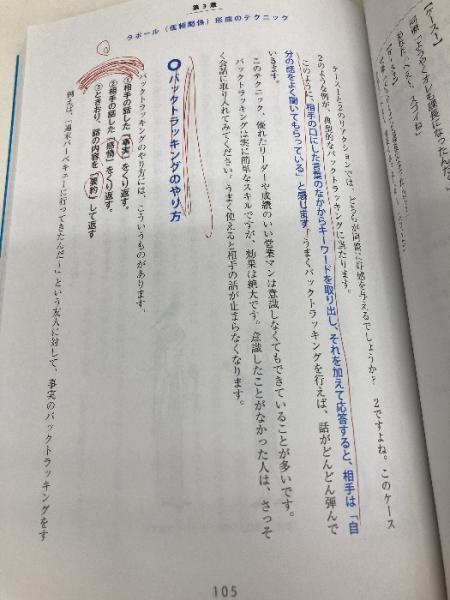 第3章
ラポール（信頼関係）形成のテクニック
【ケース1】
同僚「とうとうオレも課長になったんだ
ケース1と2のリアクションでは、どちらが同僚に好感を与えるでしょうか？　2ですよね。このケース
2のような例が、典型的なバックトラッキングに当たります。
このように、相手の口にした言葉のなかからキーワードを取り出し、それを加えて応答すると、相手は「自
分の話をよく聞いてもらっている」と感じます。うまくバックトラッキングを行えば、話がどんどん弾んで
いきます。
このテクニック、優れたリーダーや成績のいい営業マンは意識しなくてもできていることが多いです。
バックトラッキングは実に簡単なスキルですが、効果は絶大です。意識したことがなかった人は、さっそ
く会話に取り入れてみてください。うまく使えると相手の話が止まらなくなります。
バックトラッキングのやり方
バックトラッキングのやり方には、こういうものがあります。
①相手の話した「事実」をくり返す。
②相手の話した「感情」をくり返す。
③ときおり、話の内容を「要約」して返す
例えば、「週末バーベキューに行ってきたんだ〜」という友人に対して、事実のバックトラッキングをす
105